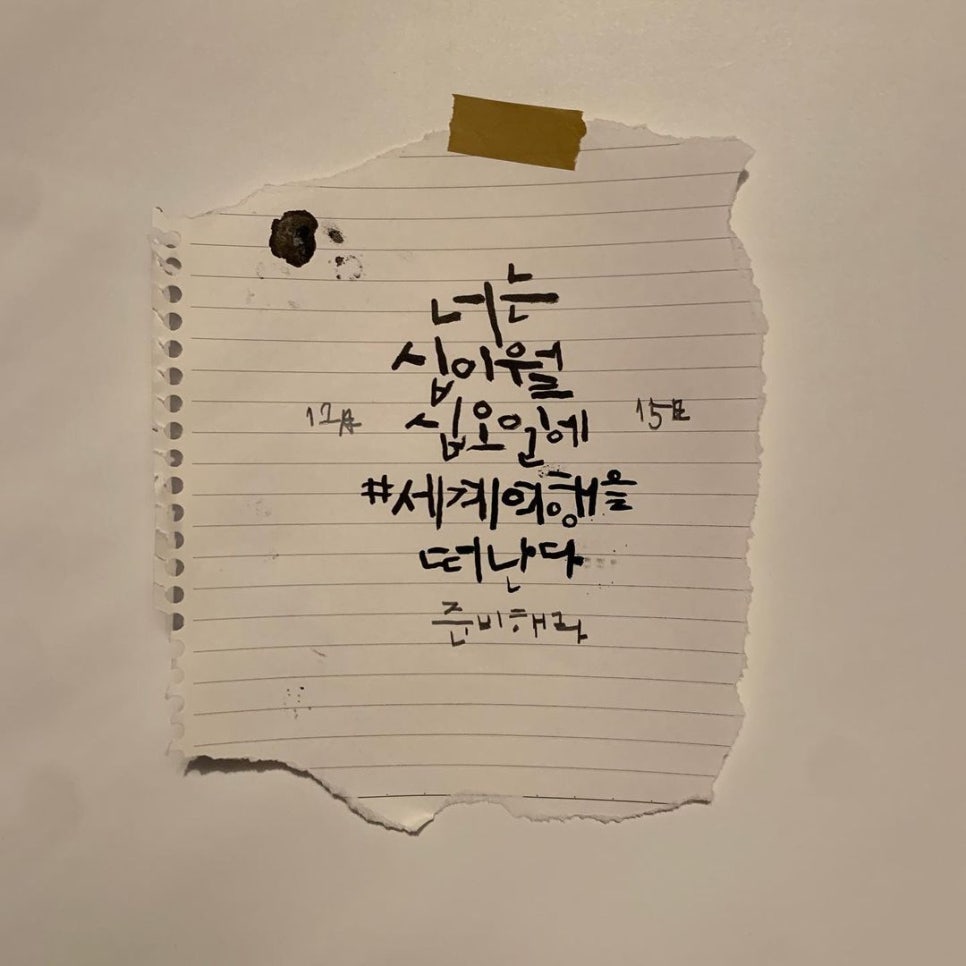 너는
십이월
십오일에
12月 15日
#세계여행을
떠난다
준비해라